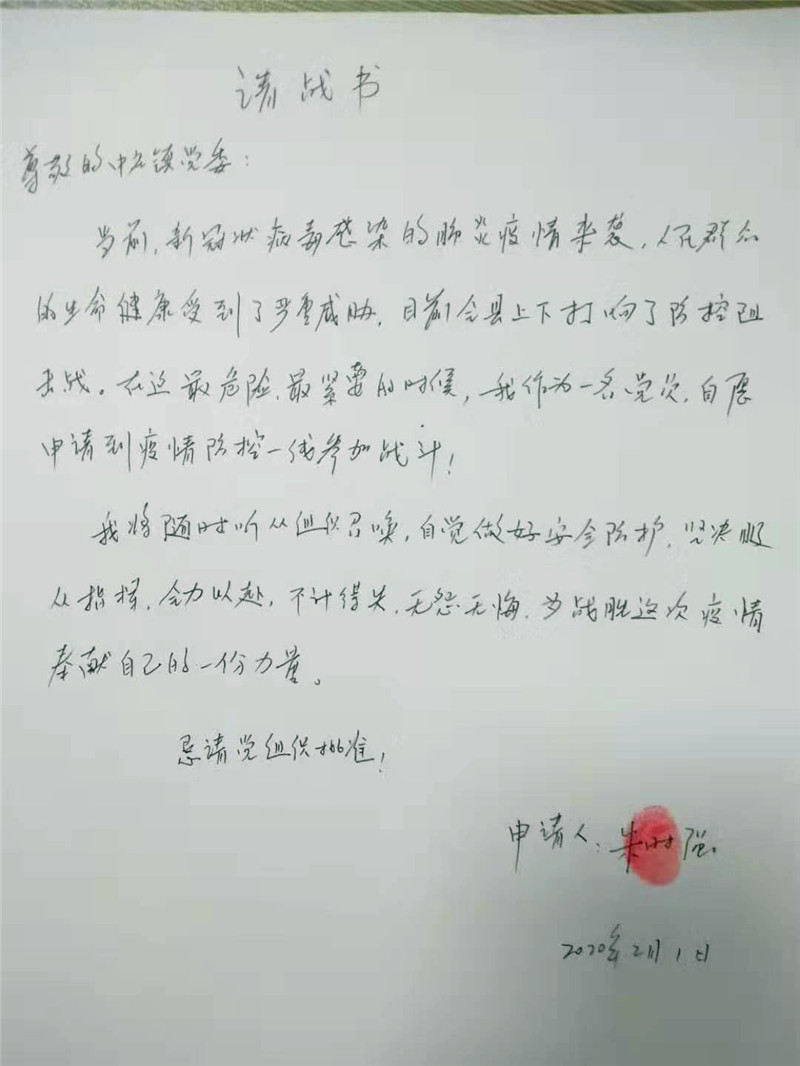 请战书
尊敬的中 镇党委：
当前,新冠状病毒感染的肺炎疫情来袭,人民群众
的生命健康受到了严重威胁,目前全县上下打响了防控阻
击战。在这最危险、最紧要的时候,我作为一名党员,自愿
申请到疫情防控一线参加战斗!
我将随时听从组织召唤,自觉做好安全防护,坚决服
从指挥,全力以赴,不计得失,无怨无悔,为战胜这次疫情
奉献自己的一份力量。
恳请党组织批准!
申请人：朱时强
2020年2月1日